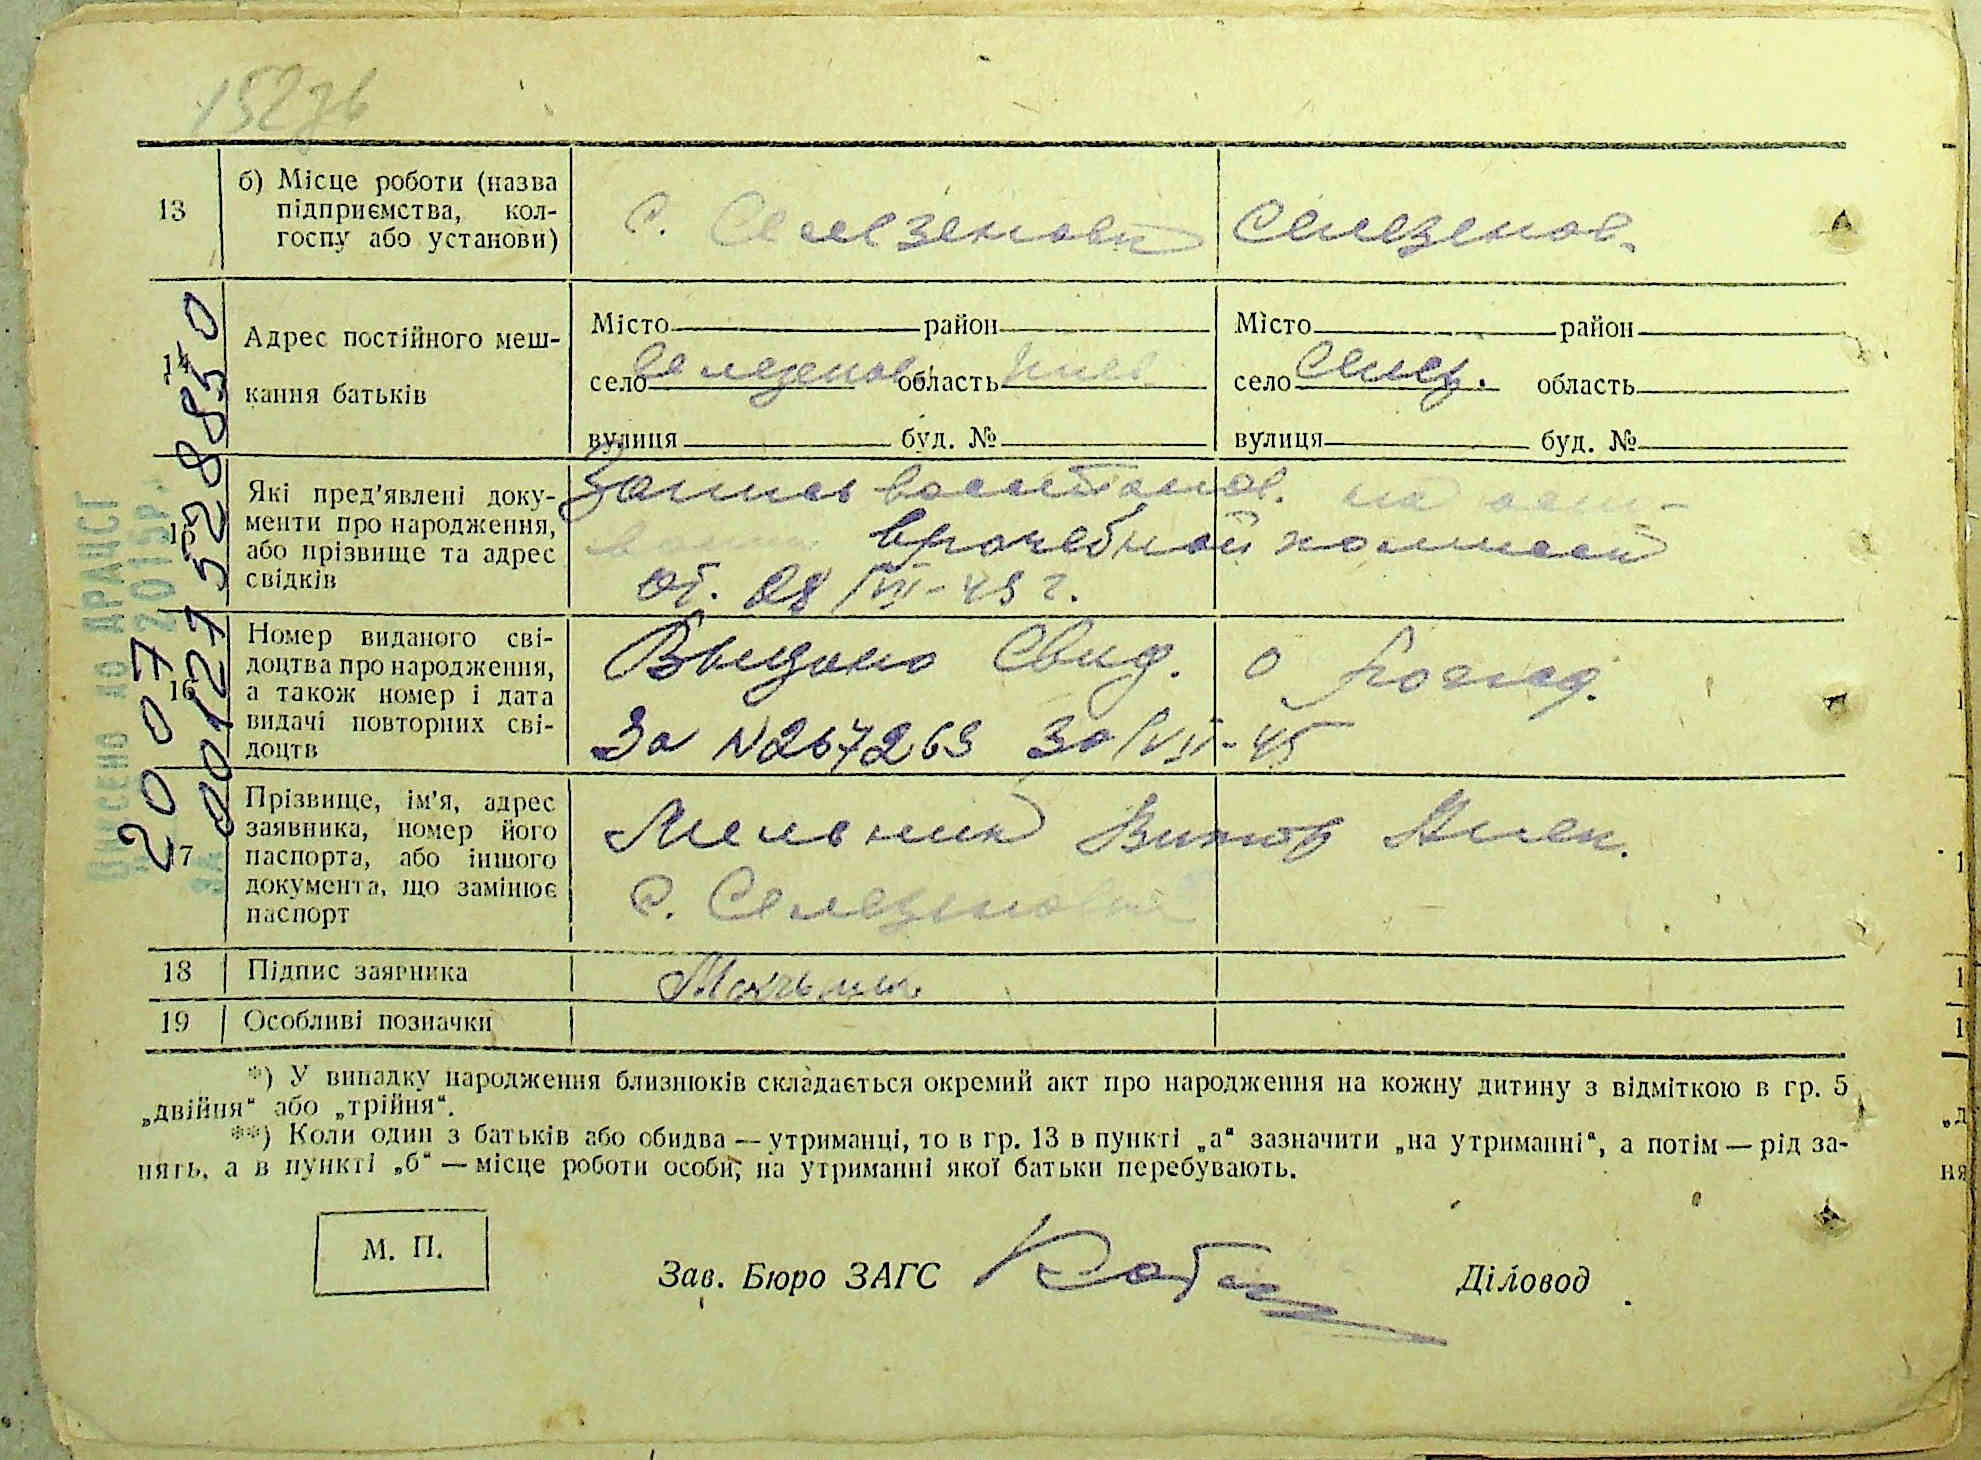 152зв
13
б) Місце роботи (назва
підприємства, кол-
госпу або установи)
с. Селезеновк
Селезенов.
14
Адрес постійного меш-
кання батьків
Місто район
село Селезенов. область Киев
вулиця буд. №
Місто район
село Селез. область
вулиця буд. №
Які пред'явлені доку-
менти про народження,
або прізвище та адрес
свідків
Запись восстанов. на осно-
вании врачебной комиссии
от. 28/VII-45 г.
16
Номер виданого сві-
доцтва про народження,
а також номер і дата
видачі повторних сві-
доцтв
Выдано Свид. о рожд.
За N267263 30/VII-45
17
Прізвище, ім'я, адрес
заявника, номер його
паспорта, або іншого
документа, що замінює
паспорт
Мельник Виктор Алек.
с. Селезеновка
18
Підпис заявника
Мельник
19
Особливі позначки
ВНЕСЕНО ДО ДРАЦСГ
20 07 2015р.
00127528850
*) У випадку народження близнюків складається окремий акт про народження на кожну дитину з відміткою в гр. 5
„двійня“ або „трійня“.
**) Коли один з батьків або обидва — утриманці, то в гр. 13 в пункті „а“ зазначити „на утриманні“, а потім — рід за-
нять, а в пункті „б“ — місце роботи особи, на утриманні якої батьки перебувають.
М. П.
Зав. Бюро ЗАГС
Діловод